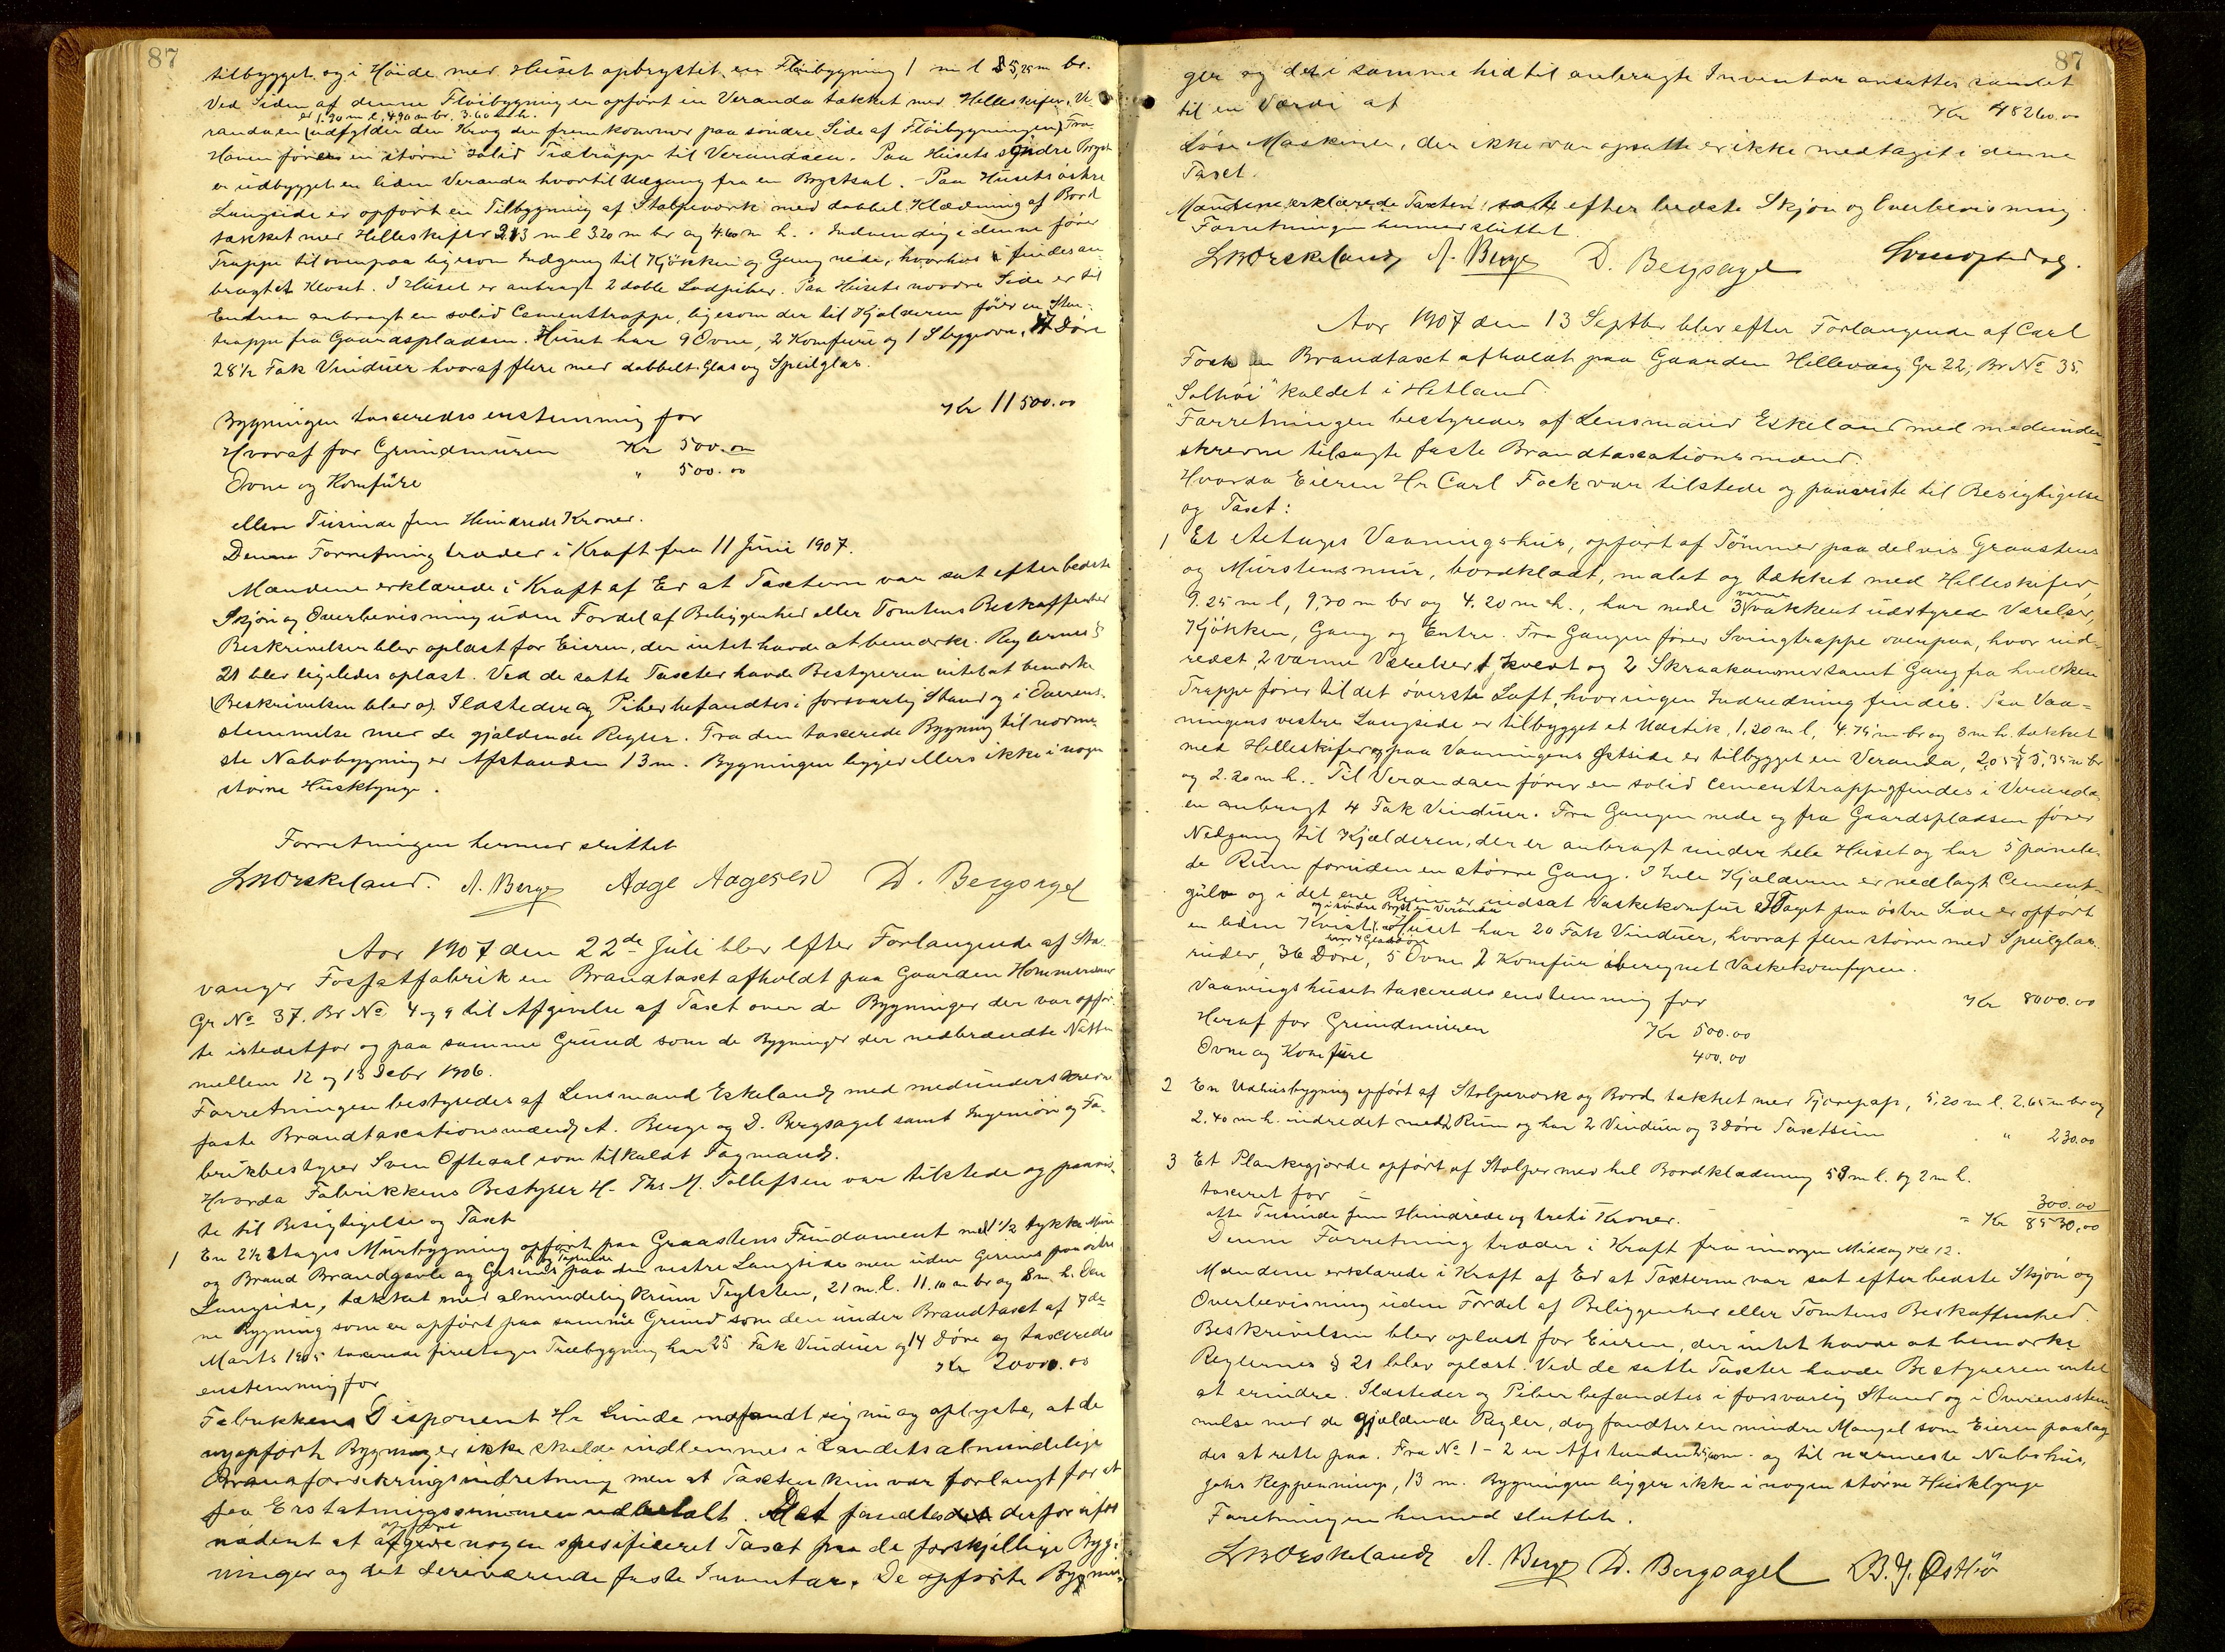 87
tilbygget og i Höide med Huset opbrystet en Flöibygning 1 m l 5,25 m br.
Ved Siden af denne Flöibygning er opfört en Veranda tækket med Helleskifer. Ve-
er 1.90 m l. 4.90 m br. 3.60 m h.
randaen (udfylder den Krog der fremkommer paa söndre Side af Flöibygningen) Fra
Haven förer en större solid Trætrappe til Verandaen. Paa Husets söndre Bryst
er udbygget en liden Veranda hvortil Udgang fra en Brystsal. Paa Husets östre
Langside er opfört en Tilbygning af Stolpeværk med dobbel Klædning af Bord
tækket med Helleskifer 2.13 m l 3.20 m br og 4.60 m h. Indvendig i denne förer
Trappe til ovenpaa ligesom Indgang til Kjökken og Gang nede, hvorhos findes an-
bragt et Kloset. I Huset er anbragt 2 doble Lodpiber. Paa Husets nordre Side er til
Entreen anbragt en solid Cementtrappe, ligesom der til Kjælderen förer en Sten-
trappe fra Gaardspladsen. Huset har 9 Ovne, 2 Komfure og 1 Strygeovn, 17 Döre
28 1/2 Fak Vinduer hvoraf flere med dobbelt Glas og Speilglas.
Bygningen taxeredes enstemmig for Kr 11500.00
Hvoraf for Grundmuren Kr 500.00
Ovne og Komfure " 500.00
elleve Tusinde fem Hundrede Kroner.
Denne Forretning træder i Kraft fra 11 Juni 1907.
Mændene erklærede i Kraft af Ed at Taxterne var sat efter bedste
Skjön og Overbevisning uden Fordel af Beliggenhed eller Tomtens Beskaffenhed
Beskrivelsen blev oplæst for Eieren, der intet havde at bemærke. Reglernes §
21 blev ligeledes oplæst. Ved de satte Taxter havde Bestyreren intet at bemærke
(Beskrivelsen blev o) Ildsteder og Piber befandtes i forsvarlig Stand og i Overens-
stemmelse med de gjældende Regler. Fra den taxerede Bygning til nærme-
ste Nabobygning er Afstanden 13 m. Bygningen ligger ellers ikke i nogen
större Husklynge.
Forretningen hermed sluttet
A. Berge Aage Aagesen D. Bergsagel
Aar 1907 den 22de Juli blev efter Forlangende af Sta-
vanger Fosfatfabrik en Brandtaxt afholdt paa Gaarden
Gr No 37. Br No 4 og 9 til Afgivelse af Taxt over de Bygninger der var opför-
te istedetfor og paa samme Grund som de Bygninger der nedbrændte Natten
mellem 12 og 13 Debr 1906.
Forretningen bestyredes af Lensmand Eskeland med medunderskrevne
faste Brandtaxationsmænd A. Berge og D. Bergsagel samt Ingeniör og Fa-
brikbestyrer Sven Oftedal som tilkaldt Fagmand.
Hvorda Fabrikkens Bestyrer H. Ths M. Tollefsen var tilstede og paavis-
te til Besigtigelse og Taxt
1 En 2 1/2 Etages Murbygning opfört paa Graastens Fundament med 1 1/2 tykke Mure
og Brand Brandgavle og Gesims paa den vestre Langside men uden Gesims paa östre
Langside, tækket med almindelig krum Teglsten, 21 m. l. 11.10 m br og 8 m. h. Den-
ne Bygning som er opfört paa samme Grund som den under Brandtaxt af 7de
Marts 1905 taxerede fireetages Træbygning har 25 Fak Vinduer og 14 Döre og taxeredes
enstemmig for Kr 20000.00
Fabrikkens Disponent Hr Lunde indfandt sig nu og oplyste, at de
nyopförte Bygninger ikke skulde indlemmes i Landets almindelige
Brandforsikringsindretning men at Taxten kun var forlangt for at
faa Erstatningssummen udbetalt. Det fandtes derfor ufor-
nödent at afgive nogen spesificeret Taxt paa de forskjellige Byg-
ninger og det deriværende faste Inventar. De opförte Bygnin-
87
ger og det i samme hidtil anbragte Inventar ansattes samlet
til en Værdi af Kr 48260.00
Löse Maskiner, der ikke var opsatte er ikke medtaget i denne
Taxt.
Mændene erklærede Taxten sat efter bedste Skjön og Overbevisning.
Forretningen hermed sluttet.
A. Berge D. Bergsagel
Aar 1907 den 13 Septbr blev efter Forlangende af Carl
Fock en Brandtaxt afholdt paa Gaarden Hillevaag Gr 22, Br No 35.
"Solhöi" kaldet i Hetland.
Forretningen bestyredes af Lensmand Eskeland med medunder-
skrevne tilsagte faste Brandtaxationsmænd.
Hvorda Eieren Hr Carl Fock var tilstede og paaviste til Besigtigelse
og Taxt:
1 Et Aetages Vaaningshus, opfört af Tömmer paa delvis Graastens
og Murstensmur, bordklædt, malet og tækket med Helleskifer,
9.25 m l, 9,30 m br og 4.20 m h., har nede 3 varme vakkert udstyrede Værelser,
Kjökken, Gang og Entre. Fra Gangen förer Svingtrappe ovenpaa, hvor ind-
redet 2 varme Værelser, 1 Kvist og 2 Skraakammer samt Gang fra hvilken
Trappe förer til det överste Loft, hvor ingen Indredning findes. Paa Vaa-
ningens vestre Langside er tilbygget et Udstik, 1,20 m l, 4.75 m br og 3 m h. tækket
med Helleskifer og paa Vaaningens Østside er tilbygget en Veranda, 2,05 l 5,35 m br
og 2.20 m h. Til Verandaen förer en solid Cementtrappe og findes i Veranda-
en anbragt 4 Fak Vinduer. Fra Gangen nede og fra Gaardspladsen förer
Nedgang til Kjælderen, der er anbragt under hele Huset og har 5 panele-
de Rum foruden en större Gang. I hele Kjælderen er nedlagt Cement-
gulv og i det ene Rum er indsat Vaskekomfur. I Taget paa östre Side er opfört
og i söndre Bryst en Veranda
en liden Kvist. Huset har 20 Fak Vinduer, hvoraf flere större med Speilglas-
hvor 4 Glasdöre
ruder, 36 Döre, 5 Ovne 2 Komfur iberegnet Vaskekomfyren.
Vaaningshuset taxeredes enstemmig for Kr 8000.00
Heraf for Grundmuren Kr 500.00
Ovne og Komfure 400.00
2 En Udhusbygning opfört af Stolpeværk og Bord tækket med Tjærepap, 5,20 m l. 2.65 m br og
2.40 m h. indredet med 2 Rum og har 2 Vinduer og 3 Döre Taxtsum " 230.00
3 Et Plankegjærde opfört af Stolper med hel Bordklædning 58 m l. og 2 m h.
taxeret for 300.00
otte Tusinde fem Hundrede og treti Kroner. = Kr 8530.00
Denne Forretning træder i Kraft fra imorgen Middag Kl 12.
Mændene erklærede i Kraft af Ed at Taxterne var sat efter bedste Skjön og
Overbevisning uden Fordel af Beliggenhed eller Tomtens Beskaffenhed.
Beskrivelsen blev oplæst for Eieren, der intet havde at bemærke
Reglernes § 21 blev oplæst. Ved de satte Taxter havde Bestyreren intet
at erindre. Ildsteder og Piber befandtes i forsvarlig Stand og i Overensstem-
melse med de gjældende Regler, dog fandtes en mindre Mangel som Eieren paalag-
des at rette paa. Fra No 1-2 er Afstanden og til nærmeste Nabohus,
13 m. Bygningen ligger ikke i nogen större Husklynge
Forretningen hermed sluttet.
A. Berge D. Bergsagel